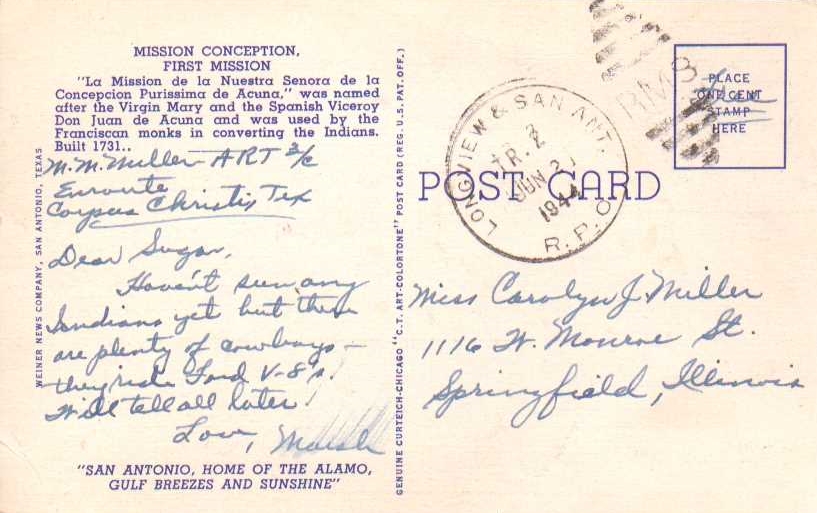 MISSION CONCEPTION,
FIRST MISSION
"La Mission de la Nuestra Senora de la
Concepcion Purissima de Acuna," was named
after the Virgin Mary and the Spanish Viceroy
Don Juan de Acuna and was used by the
Franciscan monks in converting the Indians.
Built 1731..
M. M. Miller ART 3/c
Enroute
Corpus Christi, Tex
Dear Sugar,
Haven't seen any
Indians yet but there
are plenty of cowboys –
they ride Ford V-8's!
Will tell all later!
Love,
"SAN ANTONIO, HOME OF THE ALAMO,
GULF BREEZES AND SUNSHINE"
WEINER NEWS COMPANY, SAN ANTONIO, TEXAS
GENUINE CURTEICH-CHICAGO "C.T. ART-COLORTONE" POST CARD (REG. U.S. PAT. OFF.)
POST CARD
LONGVIEW & SAN ANT.
TR. 2
JUN 2
1944
R.P.O.
RMS
PLACE
ONE CENT
STAMP
HERE
Free
Miss Carolyn J. Miller
1116 W. Monroe St.
Springfield, Illinois